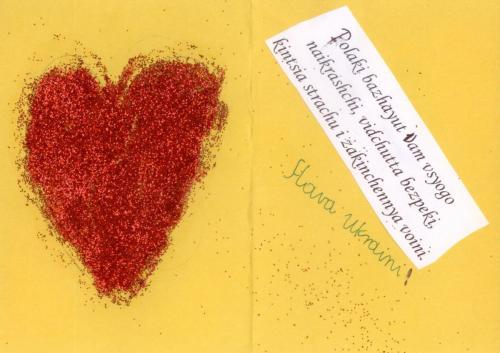 Polaki bazhayut Vam vsyogo
naikrashchi, vidchutta bezpeki,
kintsia strachu i zakinchennya voini.
Slava Ukraini!